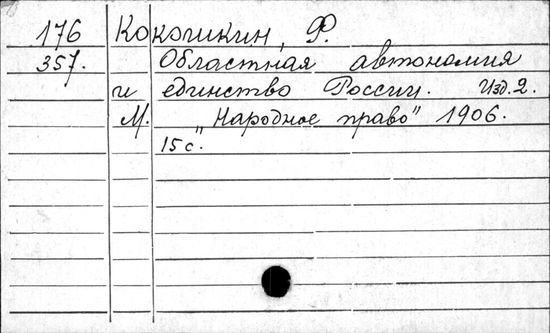 176 Кокошкин, Ф.
357. Областная автономия
и единство России. Изд. 2.
М. "Народное право" 1906.
15 с.